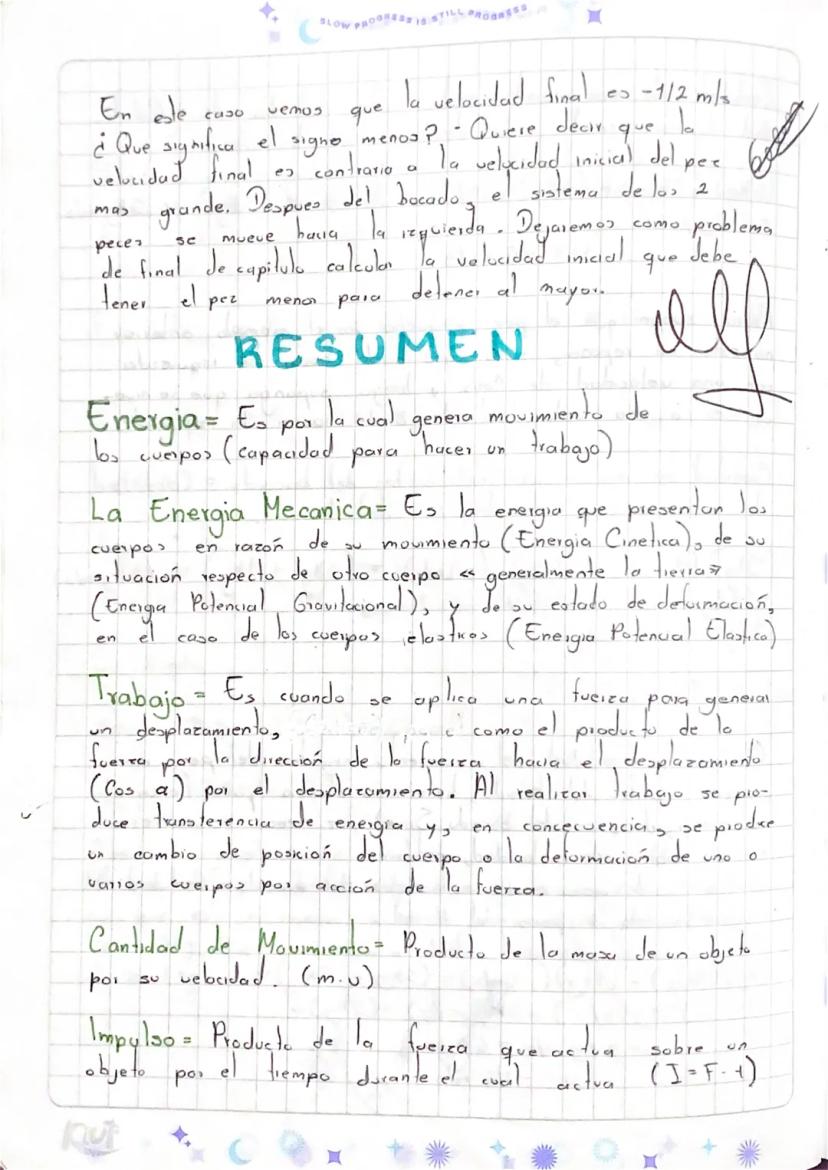 SLOW PROGRESS IS STILL PROGRESS
En este caso vemos que la velocidad final es -1/2 m/s
¿Que significa el signo menos? - Quiere decir que la
velocidad final es contrario a la velocidad inicial del pez
mas grande. Despues del bocado, el sistema de los 2
peces se mueve hacia la izquierda. Dejaremos como problema
de final de capitulo calcular la velocidad inicial que debe
tener el pez menor para detener al mayor.
RESUMEN
Energia= Es por la cual genera movimiento de
los cuerpos (capacidad para hacer un trabajo)
La Energia Mecanica= Es la energia que presentan los
cuerpos en razón de su movimiento (Energia Cinetica), de su
situación respecto de otro cuerpo << generalmente la tierra>>
(Energia Potencial Gravitacional), y de su estado de deformación,
en el caso de los cuerpos elasticos (Energia Potencial Elastica)
Trabajo= Es cuando se aplica una fuerza para general
un desplazamiento, como el producto de la
fuerza por la dirección de la fuerza hacia el desplazamiento
(Cos α) por el desplazamiento. Al realizar trabajo se pro-
duce transferencia de energia y, en concecuencia, se produce
un cambio de posición del cuerpo o la deformación de uno o
varios cuerpos por acción de la fuerza.
Cantidad de Movimiento= Producto de la masa de un objeto
por su velocidad. (m.v)
Impulso= Producto de la fuerza que actua sobre un
objeto por el tiempo durante el cual actua (I=F.t)
Kiut